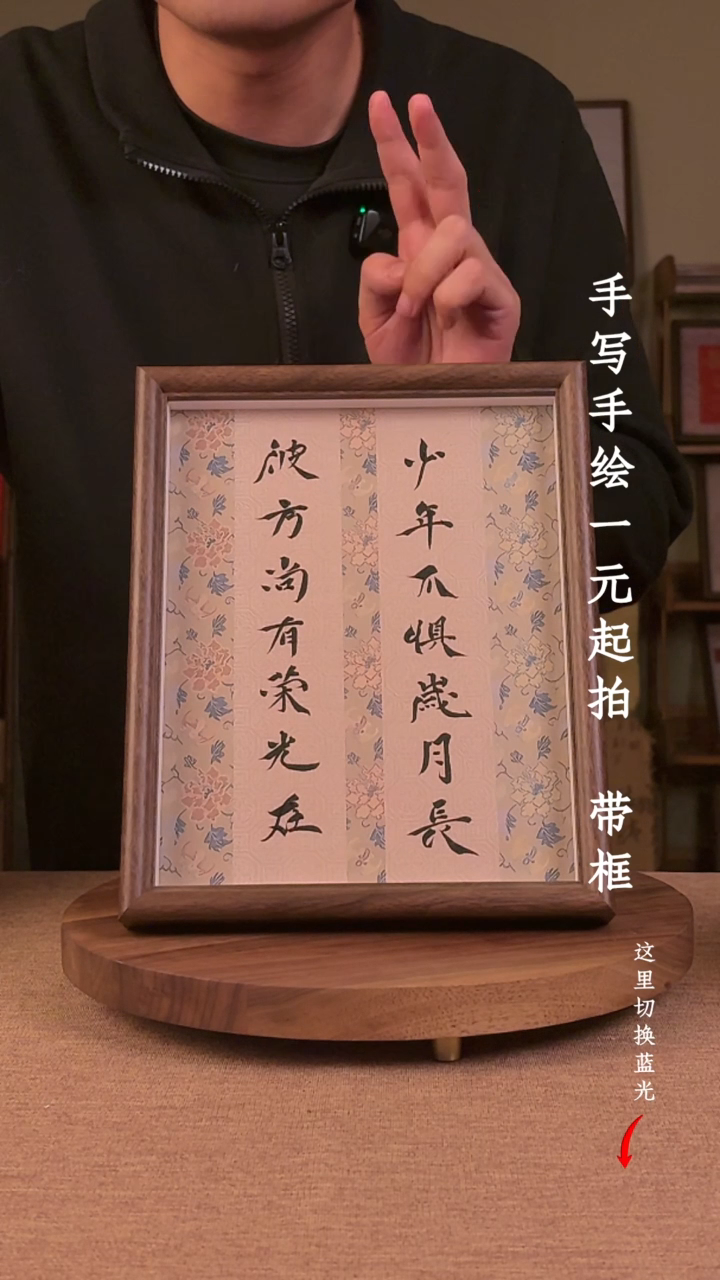 少年不惧歲月長
彼方尚有荣光在
手写手绘一元起拍 带框
这里切换蓝光